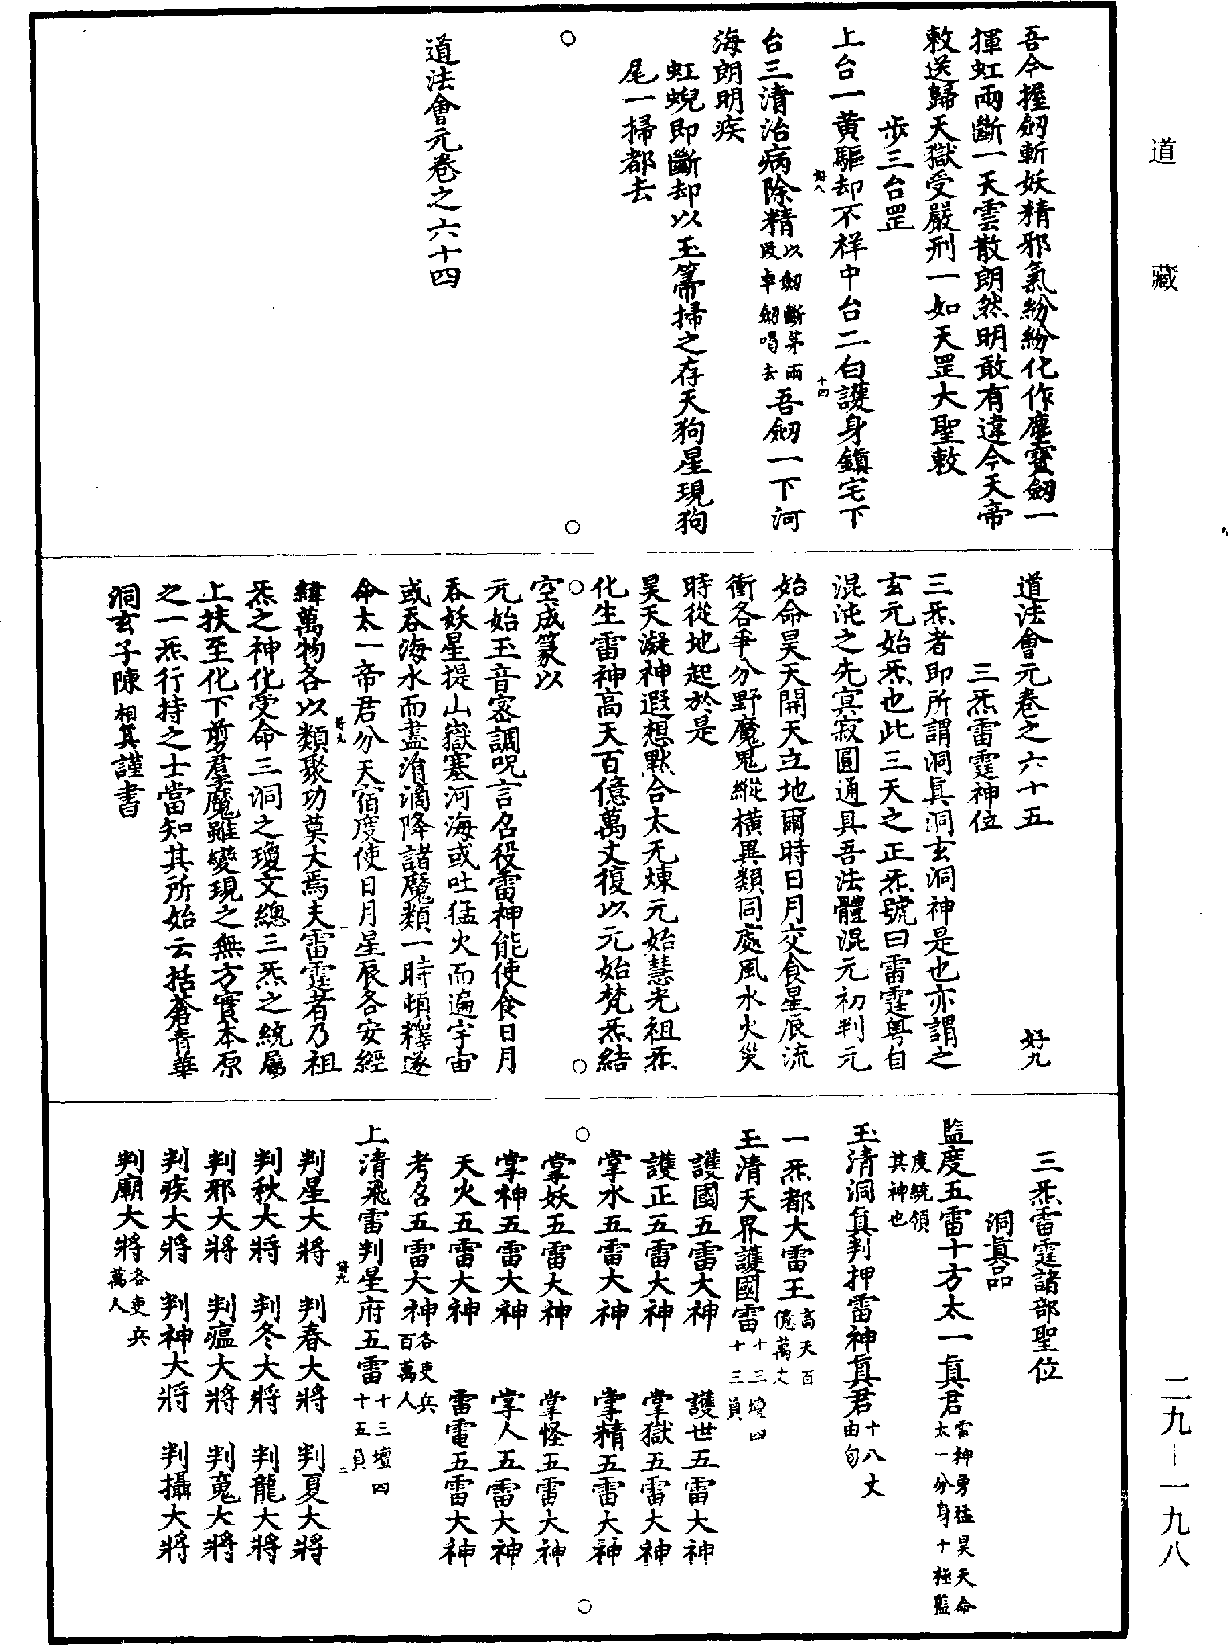 道藏
吾今握劒斬妖精邪氣紛紛化作塵寶劒一
揮虹兩斷一天雲散朗然明敢有違令天帝
敕送歸天獄受嚴刑一如天罡大聖敕
步三台罡
上台一黃驅却不祥中台二白護身鎮宅下
台三清治病除精以劒斷茅兩段卓劒喝去吾劒一下河
海朗明疾
虹蜺即斷却以玉箒掃之存天狗星現狗
尾一掃都去
道法會元卷之六十四
道法會元卷之六十五 好九
三炁雷霆神位
三炁者即所謂洞真洞玄洞神是也亦謂之
玄元始炁也此三天之正炁號曰雷霆粵自
混沌之先寂寂圓通具吾法體混元初判元
始命昊天開天立地爾時日月交食星辰流
衝各爭分野魔鬼縱橫異類同處風水火災
時從地起於是
昊天凝神遐想默合太无煉元始慧光祖炁
化生雷神高天百億萬丈復以元始梵炁結
空成篆以
元始玉音密調呪言名役雷神能使食日月
吞妖星提山嶽塞河海或吐猛火而遍宇宙
或吞海水而盡涓滴降諸魔類一時頓釋遂
命太一帝君分天宿度使日月星辰各安經
緯萬物各以類聚功莫大焉夫雷霆者乃祖
炁之神化受命三洞之瓊文總三炁之統屬
上扶至化下剪羣魔雖變現之無方實本原
之一炁行持之士當知其所始云括蒼青華
洞玄子陳相真謹書
三炁雷霆諸部聖位
洞真品
監度五雷十方太一真君雷神勇猛昊天命太一分身十極監
度統領其神也
玉清洞真判押雷神真君十八丈由旬
一炁都大雷王高天百億萬丈
玉清天界護國雷十三壇四十三員
護國五雷大神 護世五雷大神
護正五雷大神 掌獄五雷大神
掌水五雷大神 掌精五雷大神
掌妖五雷大神 掌怪五雷大神
掌神五雷大神 掌人五雷大神
天火五雷大神 雷電五雷大神
考召五雷大神各吏兵百萬人
上清飛雷判星府五雷十三壇四十五員
判星大將 判春大將 判夏大將
判秋大將 判冬大將 判龍大將
判邪大將 判瘟大將 判鬼大將
判疾大將 判神大將 判攝大將
判廟大將各吏兵萬人
二九－一九八